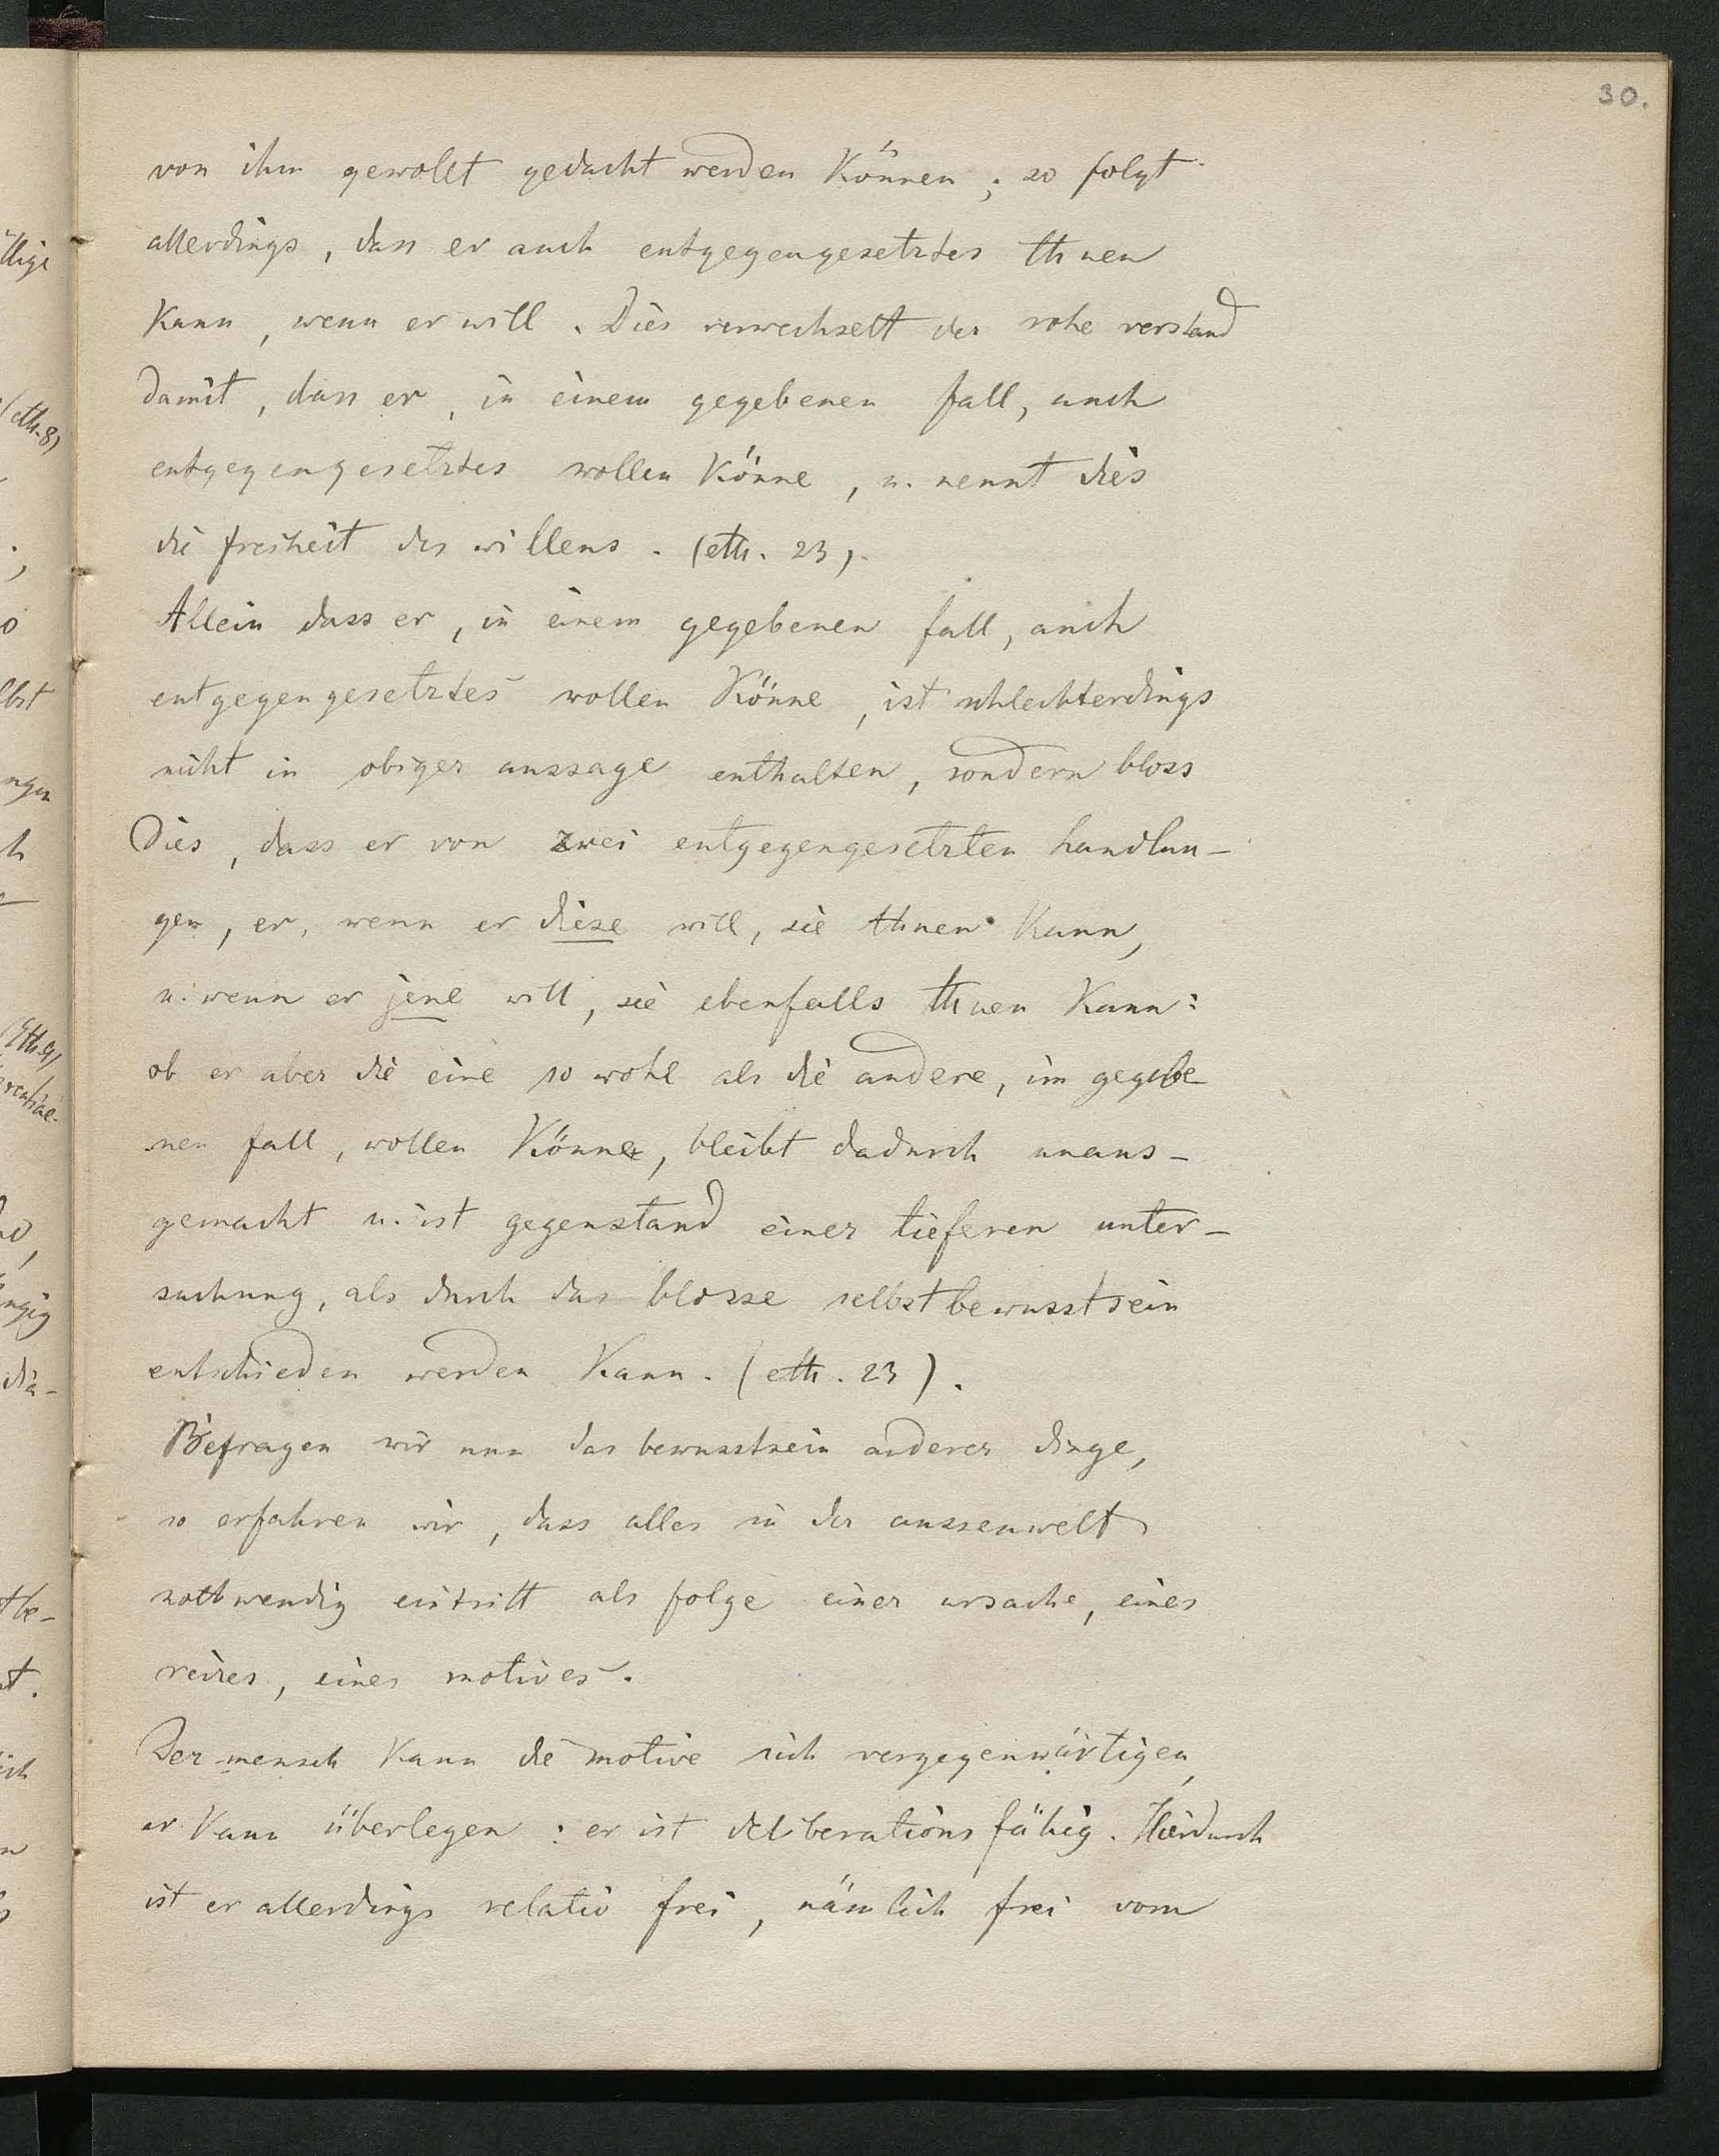 30.
von ihm gewollt gedacht werden können; so folgt
allerdings, dass er auch entgegengesetztes thuen
kann, wenn er will. Dies verwechselt der rohe verstand
damit, dass er, in einem gegebenen fall, auch
entgegengesetztes wollen könne, u. nennt dies
die freiheit des willens. (eth. 23).
Allein dass er, in einem gegebenen fall, auch
entgegengesetztes wollen könne, ist schlechterdings
nicht in obiger aussage enthalten, sondern bloss
Dies, dass er von zwei entgegengesetzten handlun-
gen, er, wenn er diese will, sie thuen kann,
u. wenn er jene will, sie ebenfalls thuen kann:
ob er aber die eine so wohl als die andere, im gegebe-
nen fall, wollen könne, bleibt dadurch unaus-
gemacht u. ist gegenstand einer tieferen unter-
suchung, als durch das blosse selbstbewusstsein
entschieden werden kann. (eth. 23).
Befragen wir nun das bewusstsein anderer dinge,
so erfahren wir, dass alles in der aussenwelt
nothwendig eintritt als folge einer ursache, eines
reizes, eines motives.
Der mensch kann die motive sich vergegenwärtigen,
er kann überlegen: er ist deliberationsfähig. Hierdurch
ist er allerdings relativ frei, nämlich frei vom